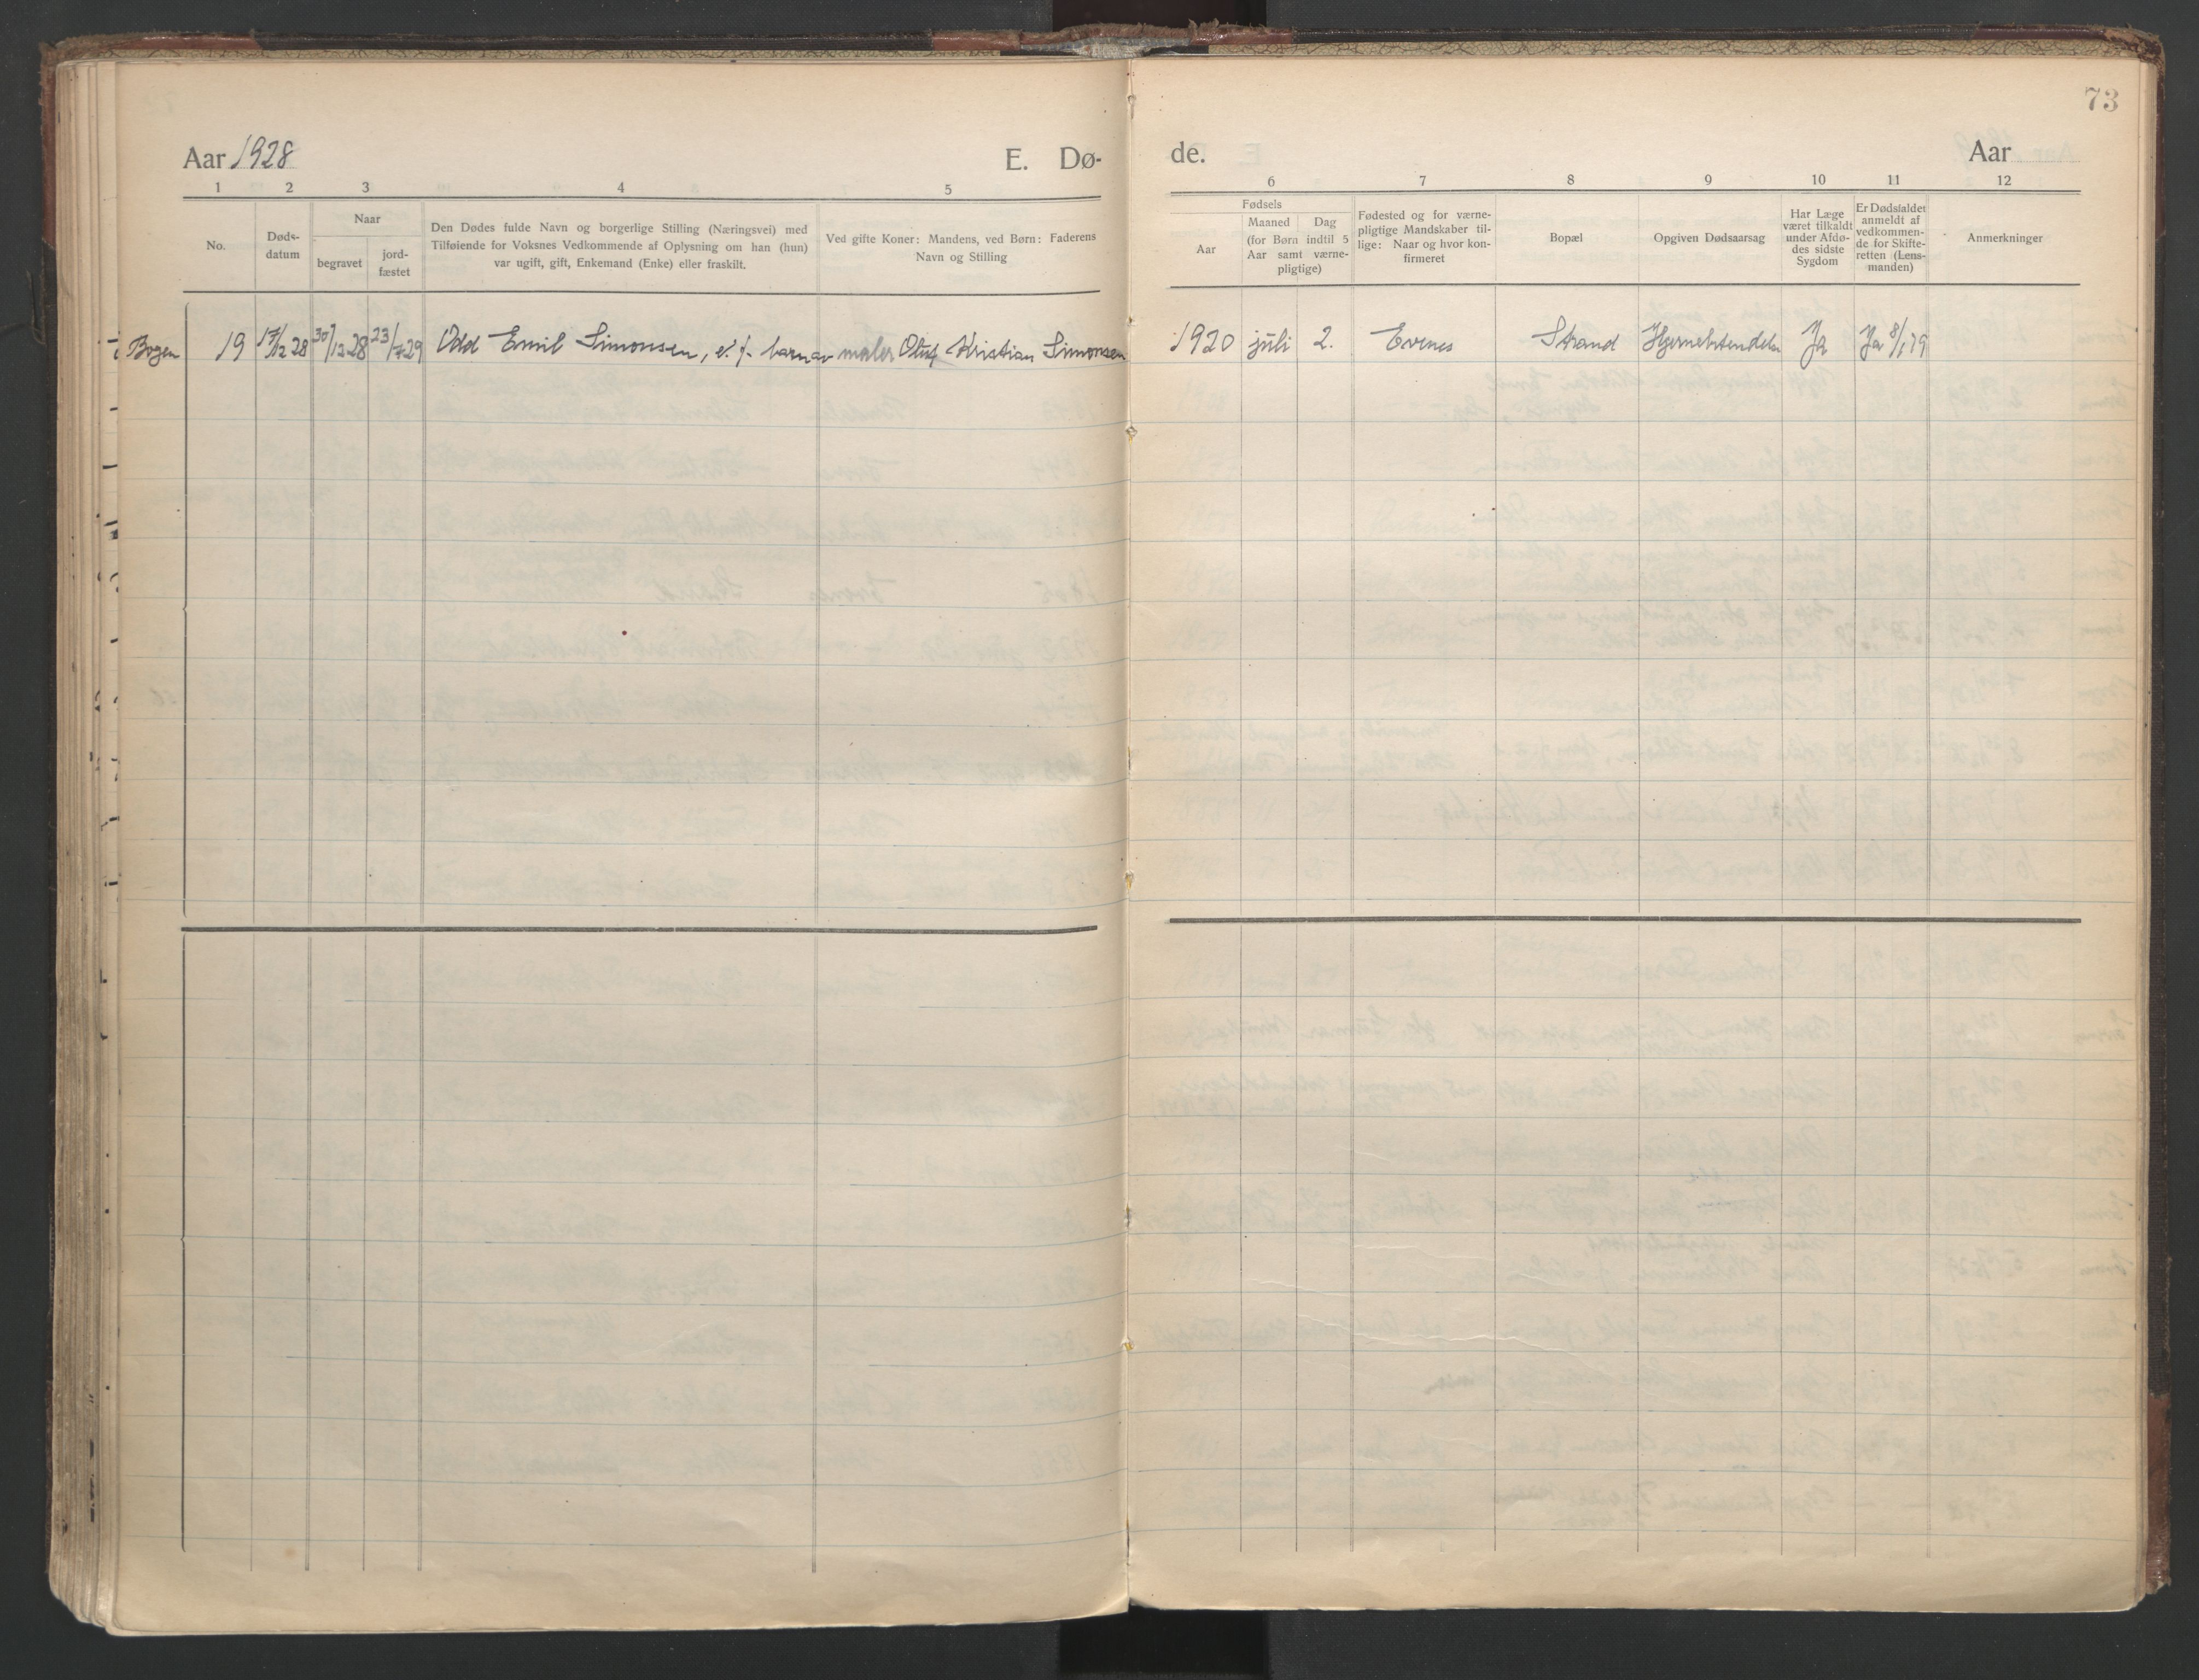 73
Aar 1928
E. Dø-
de.
Aar
1 2 3 4 5
6 7 8 9 10 11 12
No.
Døds-
datum
Naar
begravet
jord-
fæstet
Den Dødes fulde Navn og borgerlige Stilling (Næringsvei) med
Tilføiende for Voksnes Vedkommende af Oplysning om han (hun)
var ugift, gift, Enkemand (Enke) eller fraskilt.
Ved gifte Koner: Mandens, ved Børn: Faderens
Navn og Stilling
Fødsels
Aar
Maaned Dag
(for Børn indtil 5
Aar samt værne-
pligtige)
Fødested og for værne-
pligtige Mandskaber til-
lige: Naar og hvor kon-
firmeret
Bopæl
Opgiven Dødsaarsag
Har Læge
været tilkaldt
under Afdø-
des sidste
Sygdom
Er Dødsfaldet
anmeldt af
vedkommen-
de for Skifte-
retten (Lens-
manden)
Anmerkninger
Bogen 19 17/12 28 30/12 28 23/4 29 Odd Emil Simonsen, e. f. barn av maler Oluf Kristian Simonsen 1920 juli 2. Evenes Strand Ja Ja 8/1 29